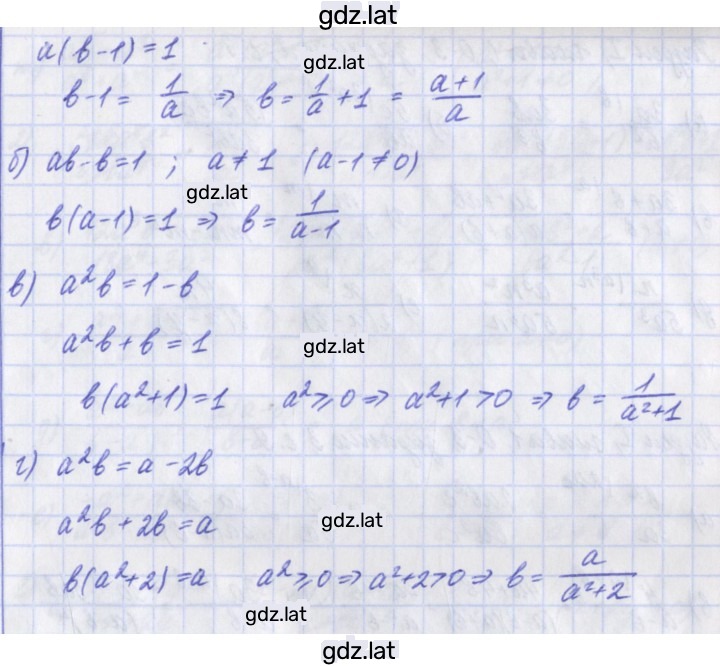 gdz.lat
a(b-1)=1
gdz.lat
b-1= 1/a ⇒ b= 1/a +1 = (a+1)/a
б) ab-b=1 ; a≠1 (a-1≠0)
gdz.lat
b(a-1)=1 ⇒ b= 1/(a-1)
в) a²b=1-b
a²b+b=1
gdz.lat
b(a²+1)=1 a²⩾0⇒ a²+1>0 ⇒ b= 1/(a²+1)
г) a²b=a-2b
a²b+2b=a
gdz.lat
b(a²+2)=a a²⩾0⇒a²+2>0⇒ b= a/(a²+2)
gdz.lat
gdz.lat